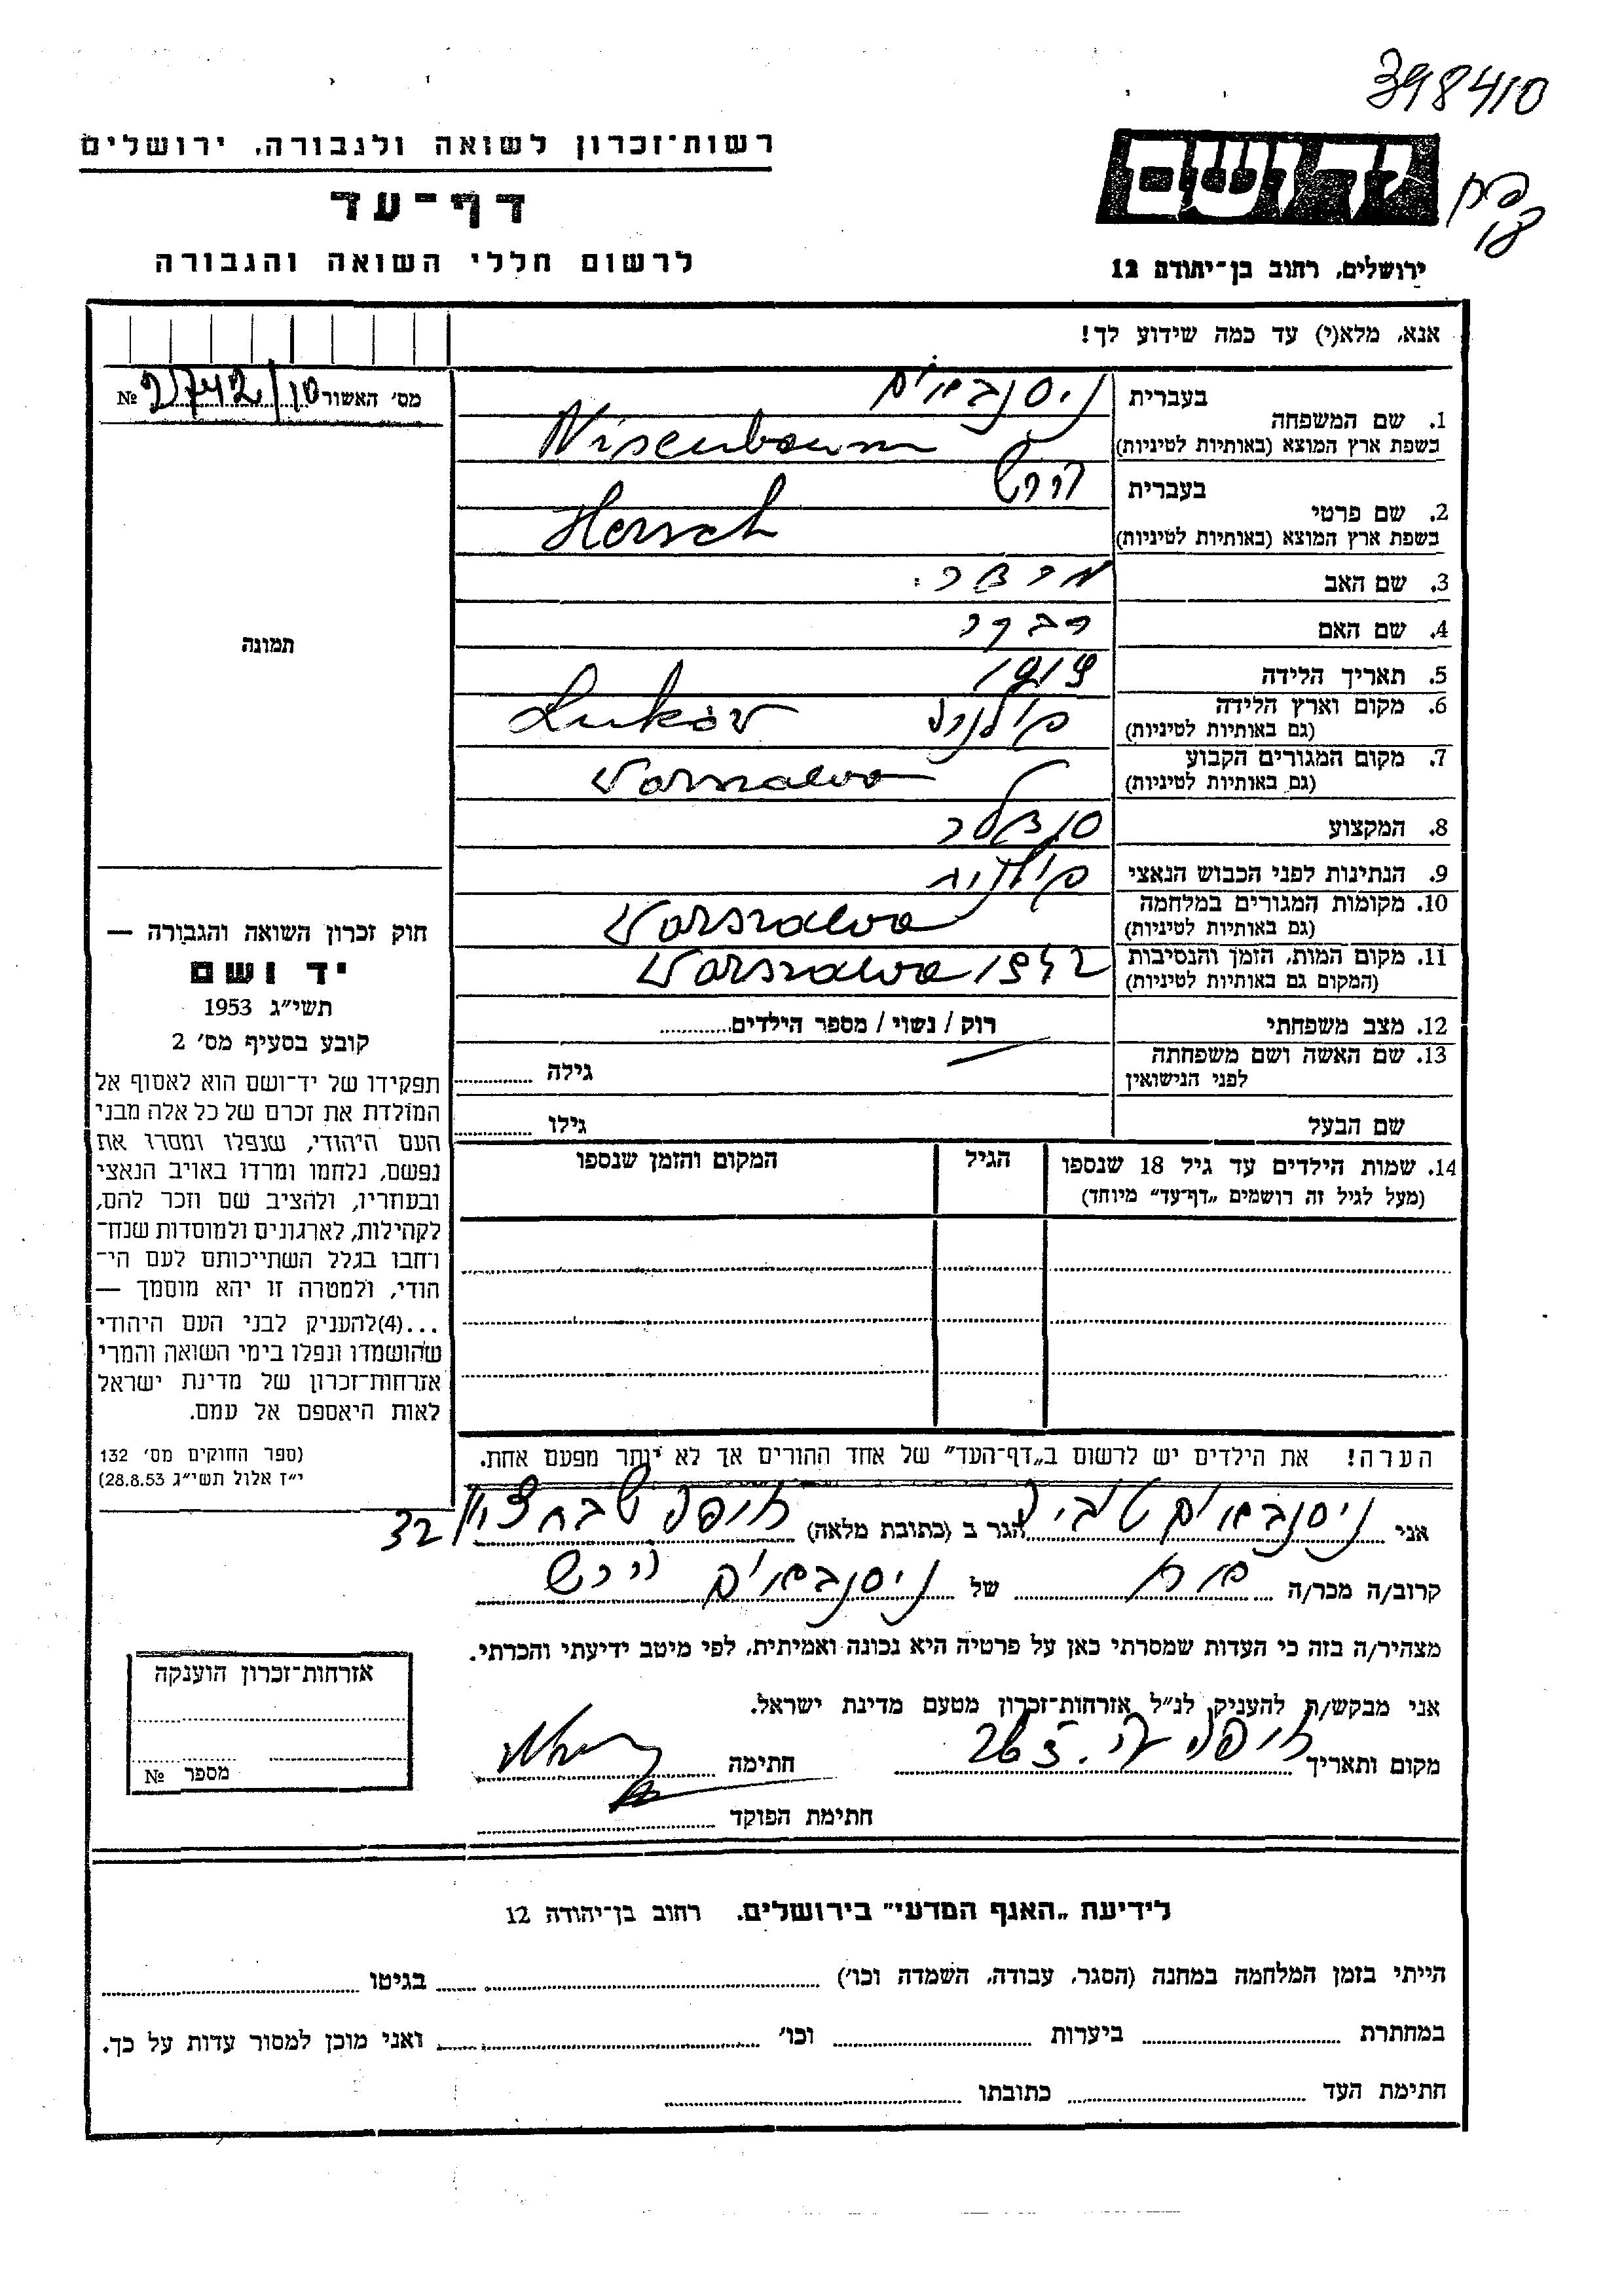 398410
רשות־זכרון לשואה ולגבורה, ירושלים
דף־עד
לרשום חללי השואה והגבורה
ידושם
ירושלים, רחוב בן־יהודה 12
אנא, מלא(י) עד כמה שידוע לך!
מס׳ האשור 2742/10 №
1. שם המשפחה
בעברית ניסנבאום
בשפת ארץ המוצא (באותיות לטיניות) Nisenbaum
2. שם פרטי
בעברית הירש
בשפת ארץ המוצא (באותיות לטיניות) Hersch
3. שם האב
4. שם האם רבקה
5. תאריך הלידה 1919
6. מקום וארץ הלידה
(גם באותיות לטיניות) פולניה Luków
7. מקום המגורים הקבוע
(גם באותיות לטיניות) Warszawa
8. המקצוע סנדלר
9. הנתינות לפני הכבוש הנאצי פולנית
10. מקומות המגורים במלחמה
(גם באותיות לטיניות) Warszawa
11. מקום המות, הזמן והנסיבות
(המקום גם באותיות לטיניות) Warszawa 1942
12. מצב משפחתי רוק / נשוי / מספר הילדים
13. שם האשה ושם משפחתה
לפני הנישואין גילה
שם הבעל גילו
14. שמות הילדים עד גיל 18 שנספו
(מעל לגיל זה רושמים „דף־עד״ מיוחד)
הגיל
המקום והזמן שנספו
תמונה
חוק זכרון השואה והגבורה —
יד ושם
תשי״ג 1953
קובע בסעיף מס׳ 2
תפקידו של יד־ושם הוא לאסוף אל
המולדת את זכרם של כל אלה מבני
העם היהודי, שנפלו ומסרו את
נפשם, נלחמו ומרדו באויב הנאצי
ובעוזריו, ולהציב שם וזכר להם,
לקהילות, לארגונים ולמוסדות שנח־
רחבו בגלל השתייכותם לעם הי־
הודי, ולמטרה זו יהא מוסמך —
...(4) להעניק לבני העם היהודי
שהושמדו ונפלו בימי השואה והמרי
אזרחות־זכרון של מדינת ישראל
לאות היאספם אל עמם.
(ספר החוקים מס׳ 132
י״ז אלול תשי״ג 28.8.53)
הערה! את הילדים יש לרשום ב„דף־העד״ של אחד ההורים אך לא יותר מפעם אחת.
אני ניסנבאום טוביה הגר ב (כתובת מלאה) חיפה 32
קרוב/ה מכר/ה של ניסנבאום הירש
מצהיר/ה בזה כי העדות שמסרתי כאן על פרטיה היא נכונה ואמיתית, לפי מיטב ידיעתי והכרתי.
אני מבקש/ת להעניק לנ״ל אזרחות־זכרון מטעם מדינת ישראל.
מקום ותאריך חיפה חתימה
חתימת הפוקד
אזרחות־זכרון הוענקה
מספר №
לידיעת „האגף המדעי״ בירושלים, רחוב בן־יהודה 12
הייתי בזמן המלחמה במחנה (הסגר, עבודה, השמדה וכו׳) בגיטו
במחתרת ביערות וכו׳ ואני מוכן למסור עדות על כך.
חתימת העד כתובתו